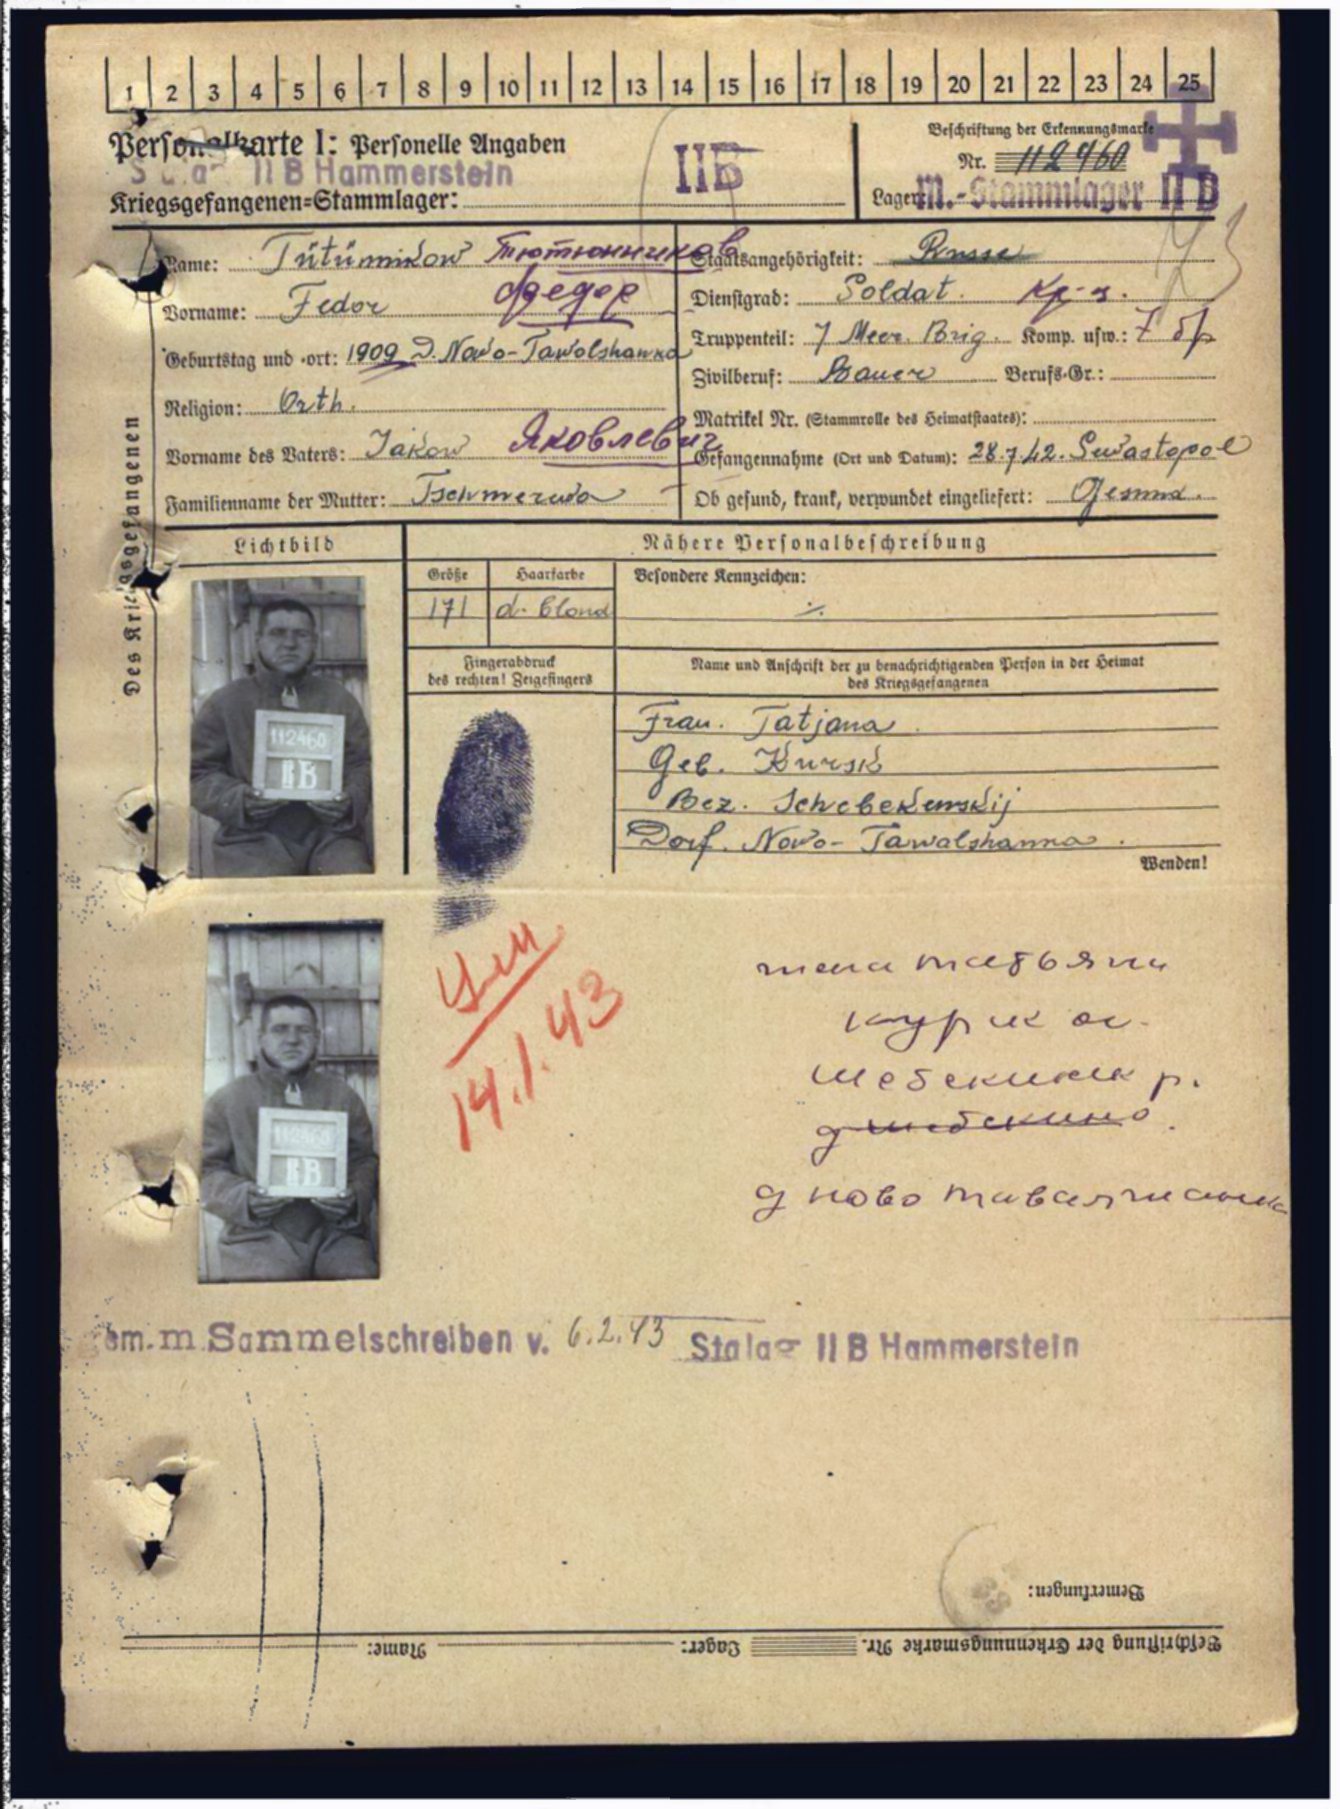 1 2 3 4 5 6 7 8 9 10 11 12 13 14 15 16 17 18 19 20 21 22 23 24 25
Personalkarte I: Personelle Angaben
Stalag II B Hammerstein
Kriegsgefangenen=Stammlager:
II B
Beschriftung der Erkennungsmarke
Nr. 112460
Lager: M.-Stammlager II B
Name: Tütünnikow Тютюнников
Vorname: Fedor Федор
Geburtstag und -ort: 1909 D. Nowo-Tawolshanka
Religion: Orth.
Vorname des Vaters: Jakow Яковлевич
Familienname der Mutter:
Staatsangehörigkeit: Russe
Dienstgrad: Soldat. Кр-ц.
Truppenteil: 7 Meer. Brig. Komp. usw.: 7 бр
Zivilberuf: Bauer Berufs-Gr.:
Matrikel Nr. (Stammrolle des Heimatstaates):
Gefangennahme (Ort und Datum): 28.7.42. Sewastopol
Ob gesund, krank, verwundet eingeliefert: Gesund.
Des Kriegsgefangenen
Lichtbild
Nähere Personalbeschreibung
Größe
Haarfarbe
Besondere Kennzeichen:
171
d. blond
./.
Fingerabdruck
des rechten! Zeigefingers
Name und Anschrift der zu benachrichtigenden Person in der Heimat
des Kriegsgefangenen
Frau. Tatjana
Geb. Kursk
Bez. Schebekenskij
Dorf. Nowo- Tawalshanna.
Wenden!
112460
II B
112460
II B
14.1.43
татьяна
шебекинск р.
д шебекино.
д ново
m. Sammelschreiben v. 6.2.43 Stalag II B Hammerstein
Bemerkungen:
Beschriftung der Erkennungsmarke Nr. Lager: Name: